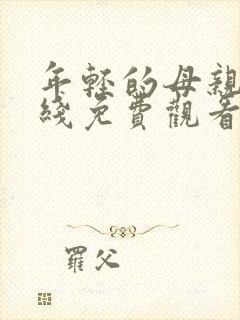 年轻的母親
綫免費觀看
羅父